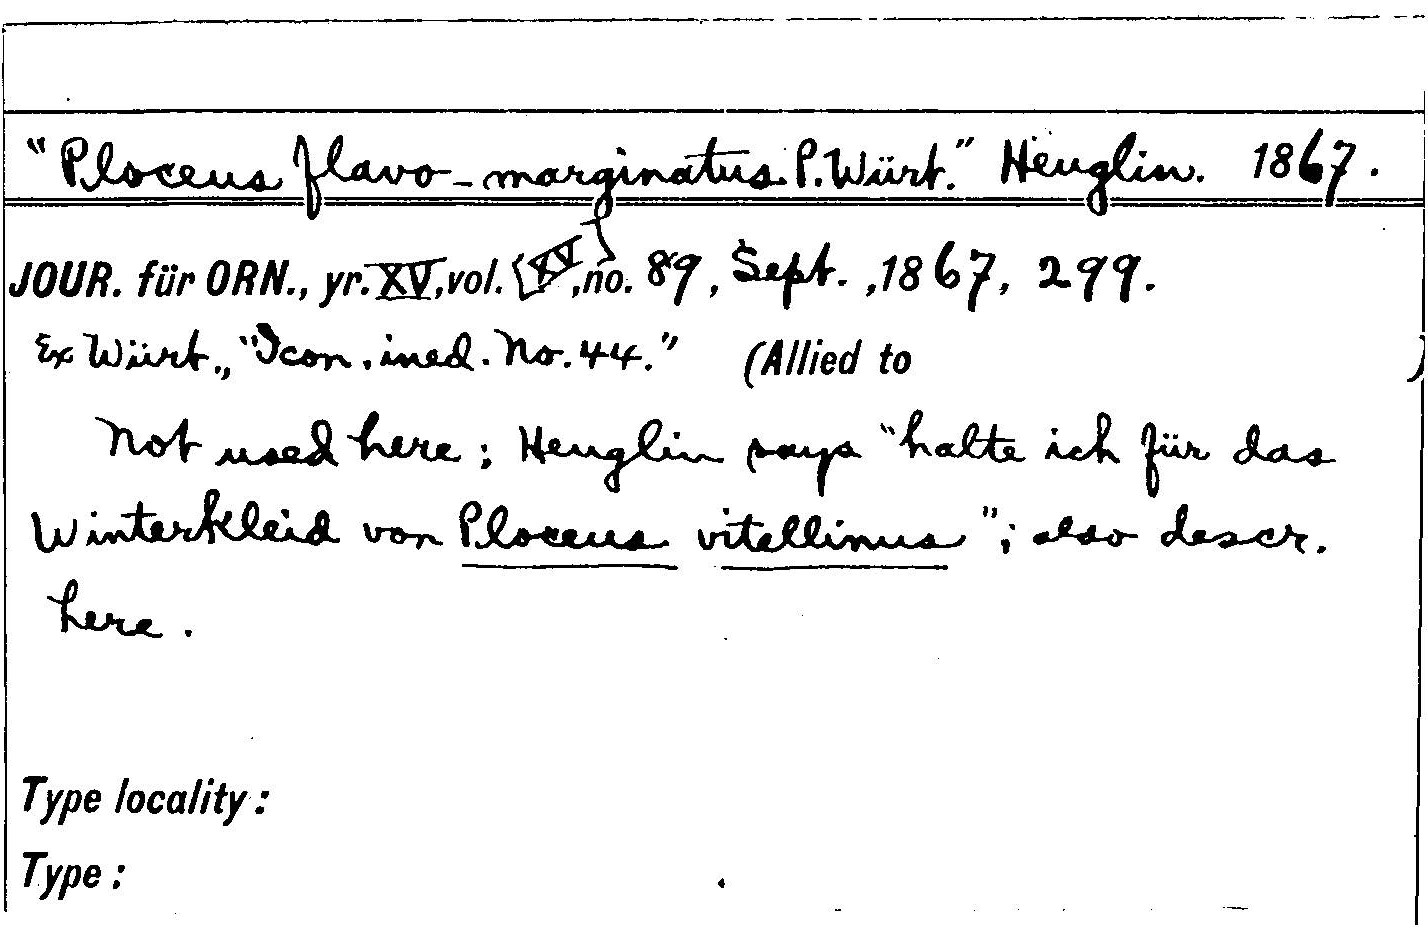 "Ploceus flavo-marginatus P. Würt." Heuglin. 1867.
JOUR. für ORN., yr. XV, vol. [XV], no. 89, Sept., 1867, 299.
Ex Würt., "Icon. ined. No. 44." (Allied to )
Not used here; Heuglin says "halte ich für das
Winterkleid von Ploceus vitellinus"; also descr.
here.
Type locality:
Type: